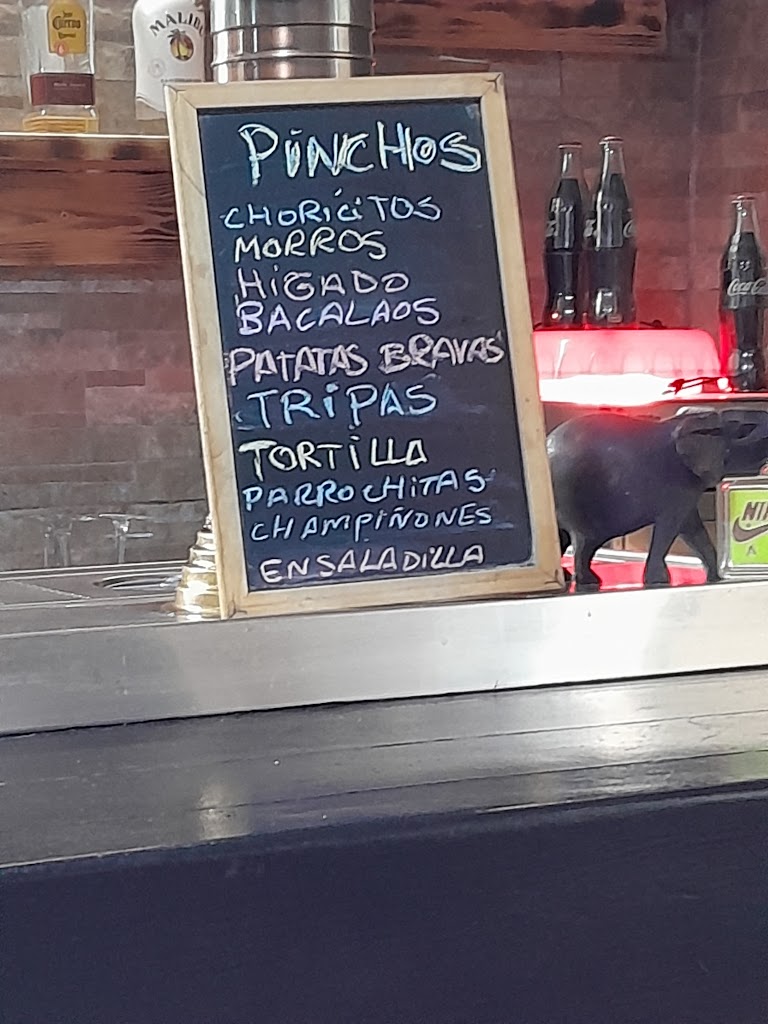 Jose
Cuervo
MALIBU
PINCHOS
CHORICITOS
MORROS
HIGADO
BACALAOS
PATATAS BRAVAS
TRIPAS
TORTILLA
PARROCHITAS
CHAMPIÑONES
ENSALADILLA
Coca-Cola